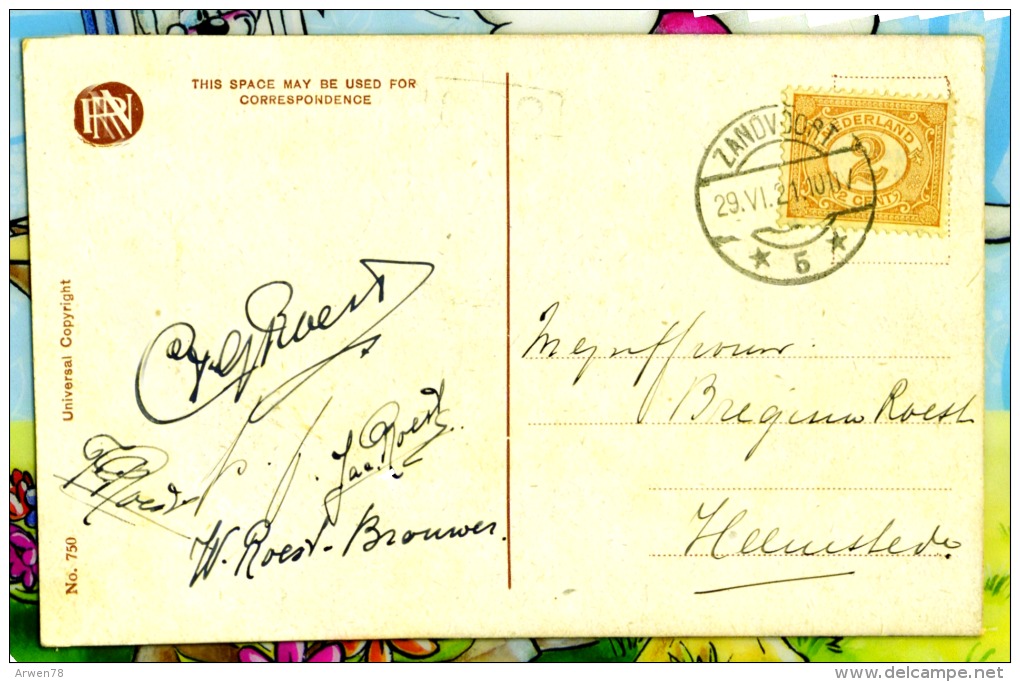 THIS SPACE MAY BE USED FOR
CORRESPONDENCE
Universal Copyright
No. 750
Roest
Roest
Jac. Roest
W. Roest-Brouwer.
ZANDVOORT
29.VI.21.
5
NEDERLAND
2
2 CENT
Mejuffrouw
Bregina Roest
Heemstede
Arwen78
www.delcampe.net